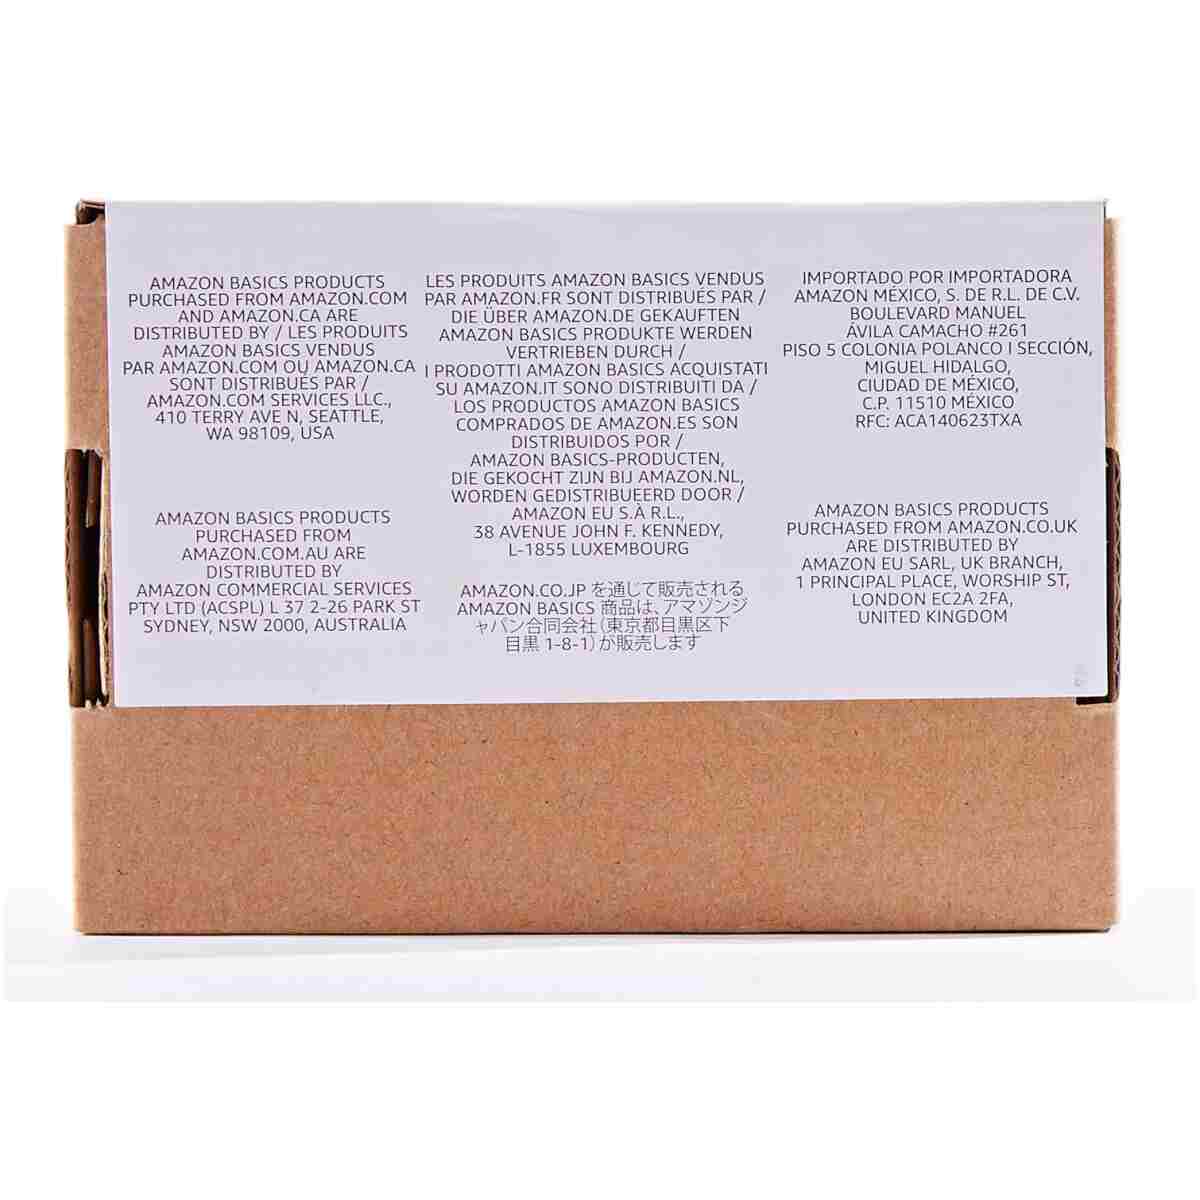 AMAZON BASICS PRODUCTS
PURCHASED FROM AMAZON.COM
AND AMAZON.CA ARE
DISTRIBUTED BY / LES PRODUITS
AMAZON BASICS VENDUS
PAR AMAZON.COM OU AMAZON.CA
SONT DISTRIBUÉS PAR /
AMAZON.COM SERVICES LLC.,
410 TERRY AVE N, SEATTLE,
WA 98109, USA
AMAZON BASICS PRODUCTS
PURCHASED FROM
AMAZON.COM.AU ARE
DISTRIBUTED BY
AMAZON COMMERCIAL SERVICES
PTY LTD (ACSPL) L 37 2-26 PARK ST
SYDNEY, NSW 2000, AUSTRALIA
LES PRODUITS AMAZON BASICS VENDUS
PAR AMAZON.FR SONT DISTRIBUÉS PAR /
DIE ÜBER AMAZON.DE GEKAUFTEN
AMAZON BASICS PRODUKTE WERDEN
VERTRIEBEN DURCH /
I PRODOTTI AMAZON BASICS ACQUISTATI
SU AMAZON.IT SONO DISTRIBUITI DA /
LOS PRODUCTOS AMAZON BASICS
COMPRADOS DE AMAZON.ES SON
DISTRIBUIDOS POR /
AMAZON BASICS-PRODUCTEN,
DIE GEKOCHT ZIJN BIJ AMAZON.NL,
WORDEN GEDISTRIBUEERD DOOR /
AMAZON EU S.À R.L.,
38 AVENUE JOHN F. KENNEDY,
L-1855 LUXEMBOURG
AMAZON.CO.JP を通じて販売される
AMAZON BASICS 商品は、アマゾンジ
ャパン合同会社(東京都目黒区下
目黒 1-8-1)が販売します
IMPORTADO POR IMPORTADORA
AMAZON MÉXICO, S. DE R.L. DE C.V.
BOULEVARD MANUEL
ÁVILA CAMACHO #261
PISO 5 COLONIA POLANCO I SECCIÓN,
MIGUEL HIDALGO,
CIUDAD DE MÉXICO,
C.P. 11510 MÉXICO
RFC: ACA140623TXA
AMAZON BASICS PRODUCTS
PURCHASED FROM AMAZON.CO.UK
ARE DISTRIBUTED BY
AMAZON EU SARL, UK BRANCH,
1 PRINCIPAL PLACE, WORSHIP ST,
LONDON EC2A 2FA,
UNITED KINGDOM